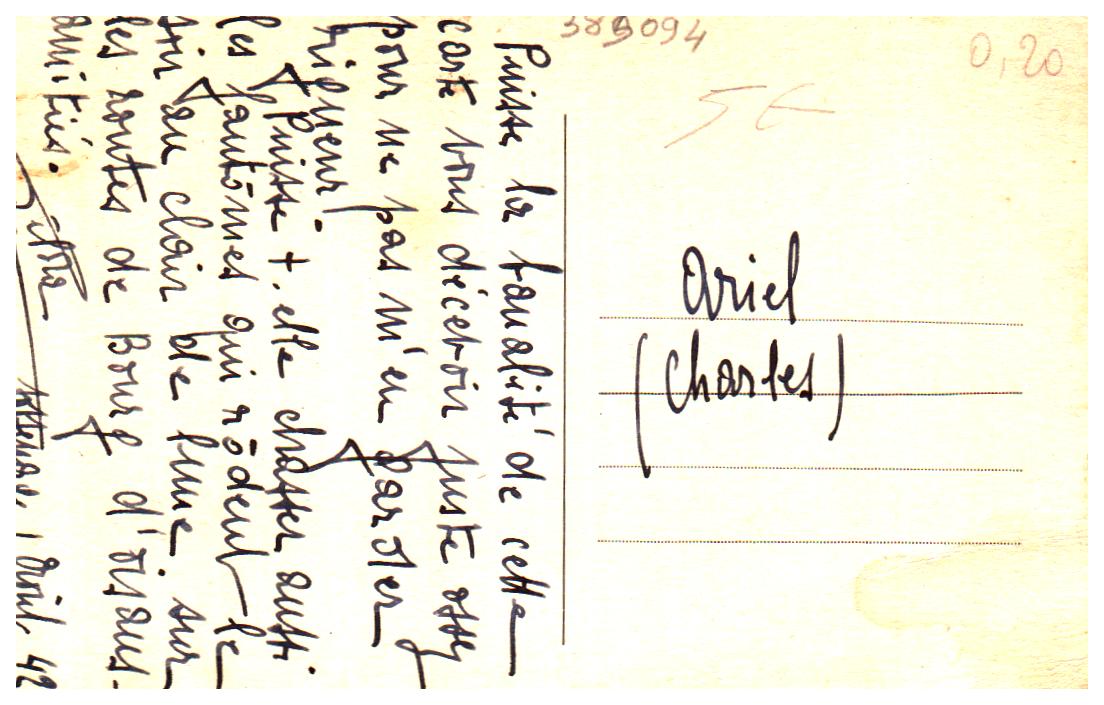 Puisse la banalité de cette
carte vous décevoir juste assez
pour ne pas m'en garder
rigueur!
Puisse t. elle chasser aussi
les fantômes qui rôdent le
soir au clair de lune sur
les routes de Bourg d'oisans.
amitiés.
1 Août 42
385094
0,20
5€
Ariel
(Charles)